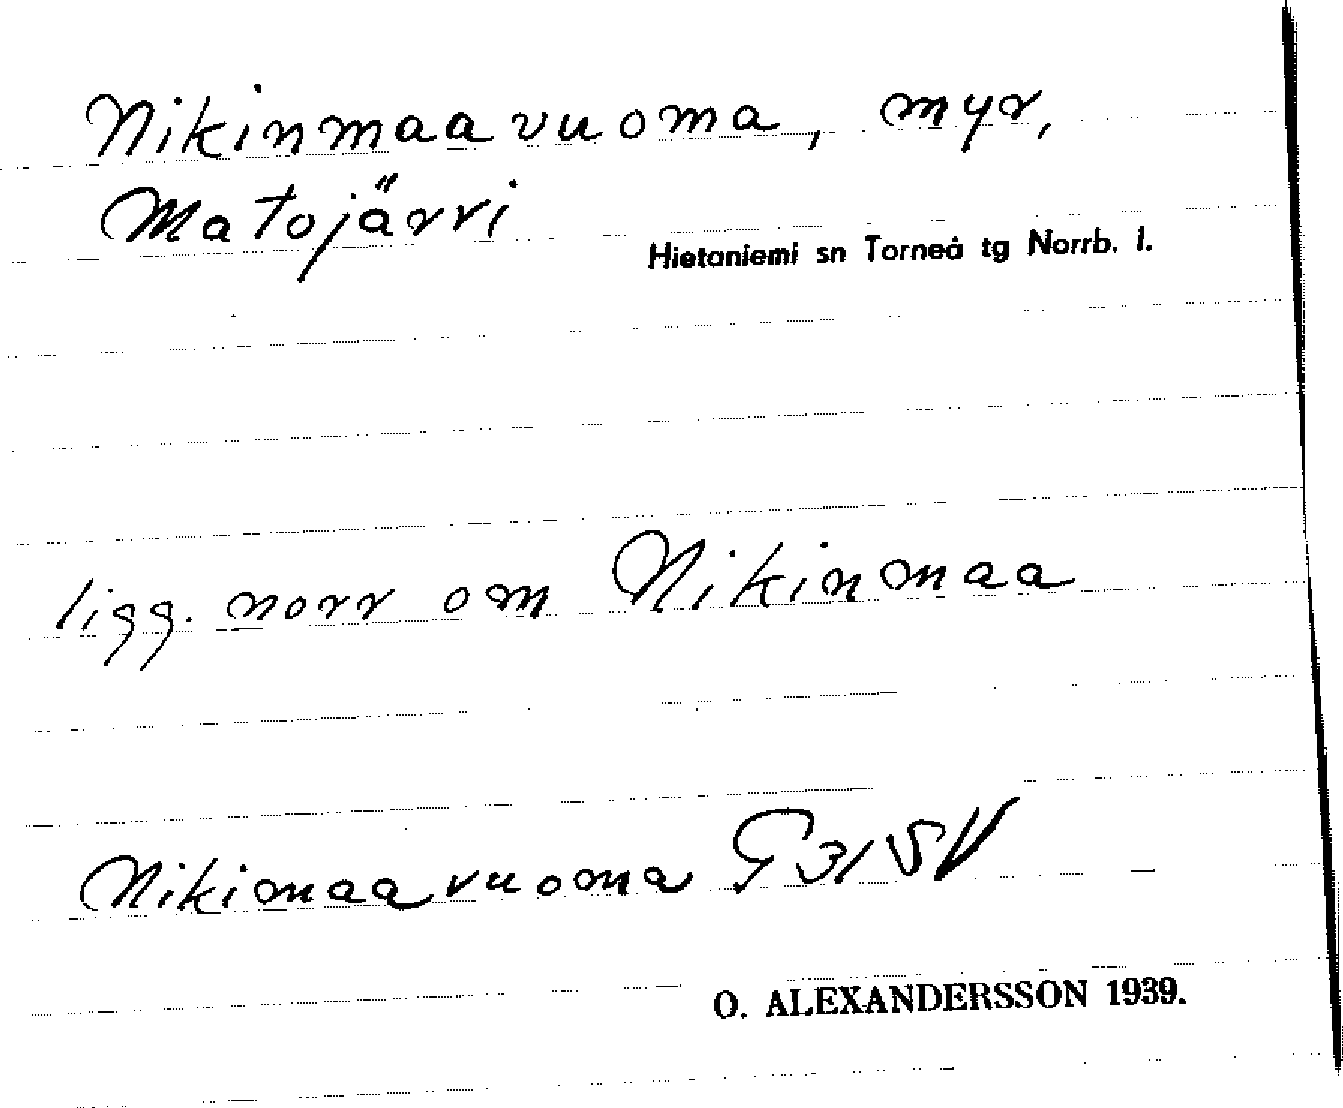 Nikinmaavuoma, myr,
Matojärvi
Hietaniemi sn Torneå tg Norrb. l.
ligg. norr om Nikinmaa
Nikimaavuoma G 31 SV
O. ALEXANDERSSON 1939.